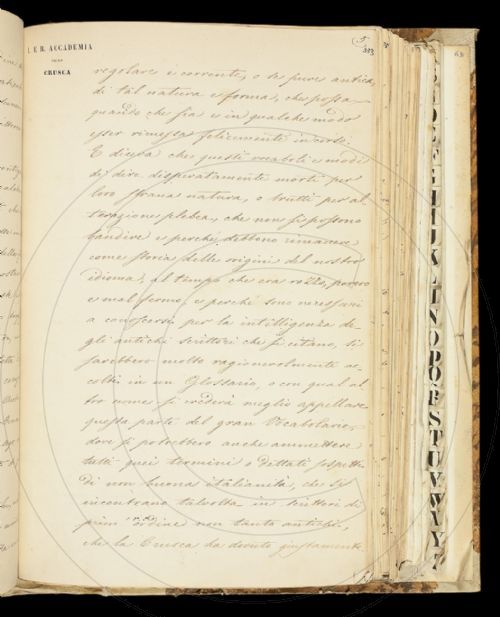 I. E R. ACCADEMIA
DELLA
CRUSCA
5
regolare e corrente, o se pure antica,
di tal natura e forma, che possa
quando che sia e in qualche modo
esser rimessa felicemente in corso.
E diceva che questi vocaboli e modi
di dire disperatamente morti per
loro strana natura, o brutti per al-
terazione plebea, che non si possono
bandire e perchè debbono rimanere
come storia delle origini del nostro
idioma, al tempo che era rozzo, povero
e mal fermo, e perchè sono necessari
a conoscersi per la intelligenza de-
gli antichi scrittori che si citano, si
sarebbero molto ragionevolmente ac-
colti in un Glossario, o con qual al-
tro nome si crederà meglio appellare
questa parte del gran Vocabolario,
dove si potrebbero anche ammettere
tutti quei termini o dettati sospetti
di non buona italianità, che si
incontrano talvolta in scrittori di
prim'ordine non tanto antichi,
che la Crusca ha dovuto giustamente